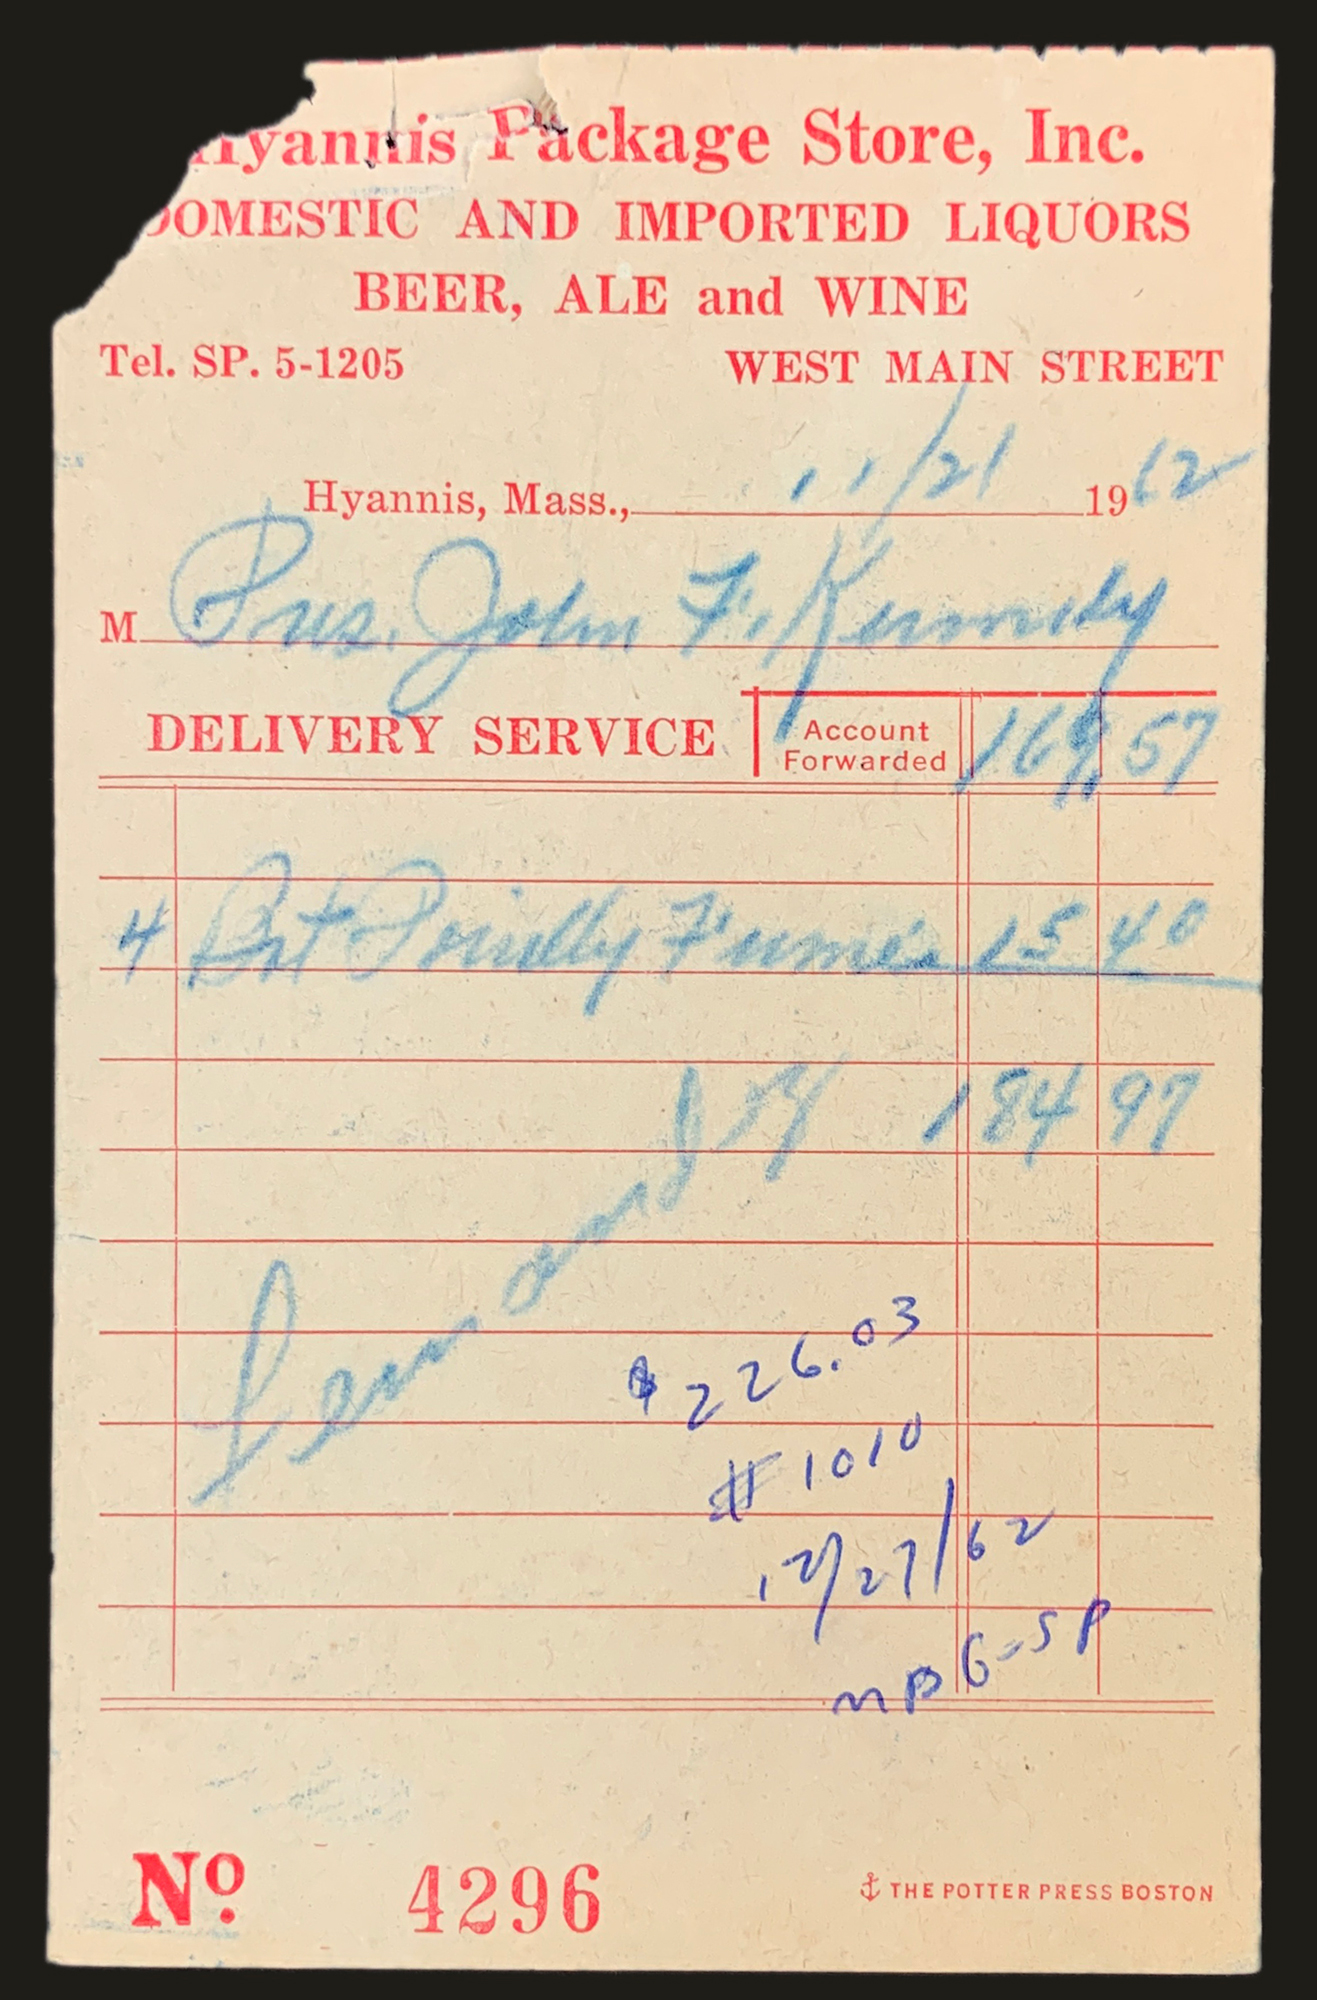 Hyannis Package Store, Inc.
DOMESTIC AND IMPORTED LIQUORS
BEER, ALE and WINE
Tel. SP. 5-1205 WEST MAIN STREET
Hyannis, Mass., 11/21 1962
M Pres. John F. Kennedy
DELIVERY SERVICE Account Forwarded 169 57
4 Bot Pouilly Fumé 15 40
184 97
Leonard
$226.03
#1010
12/27/62
No. 4296 THE POTTER PRESS BOSTON